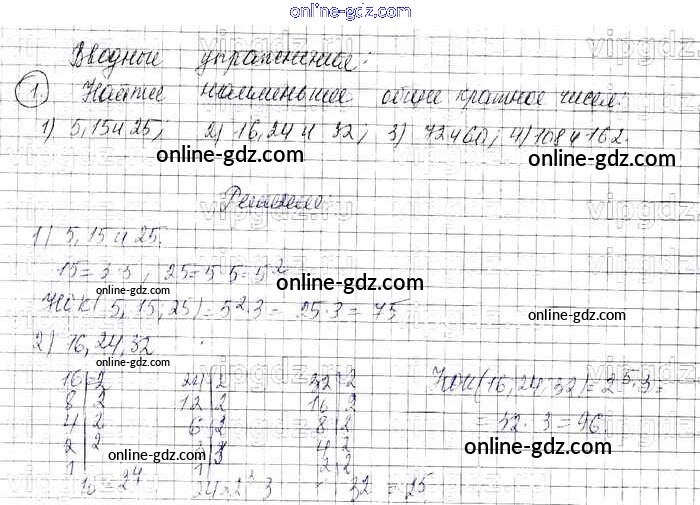 online-gdz.com
Вводные упражнения:
1. Найти наименьшее общее кратное чисел:
1) 5, 15 и 25; 2) 16, 24 и 32; 3) 72 и 60; 4) 108 и 162.
online-gdz.com online-gdz.com
Решение:
1) 5, 15 и 25.
15 = 3·5, 25 = 5·5 = 5²
online-gdz.com
НОК(5, 15, 25) = 5²·3 = 25·3 = 75
online-gdz.com
2) 16, 24, 32
online-gdz.com online-gdz.com
16 2 24 2 32 2 НОК(16, 24, 32) = 2⁵·3 =
8 2 12 2 16 2
4 2 6 2 8 2 = 32·3 = 96.
2 2 3 3 4 2 online-gdz.com
online-gdz.com
1 1 2 2
16 = 2⁴ 32 = 2⁵
online-gdz.com